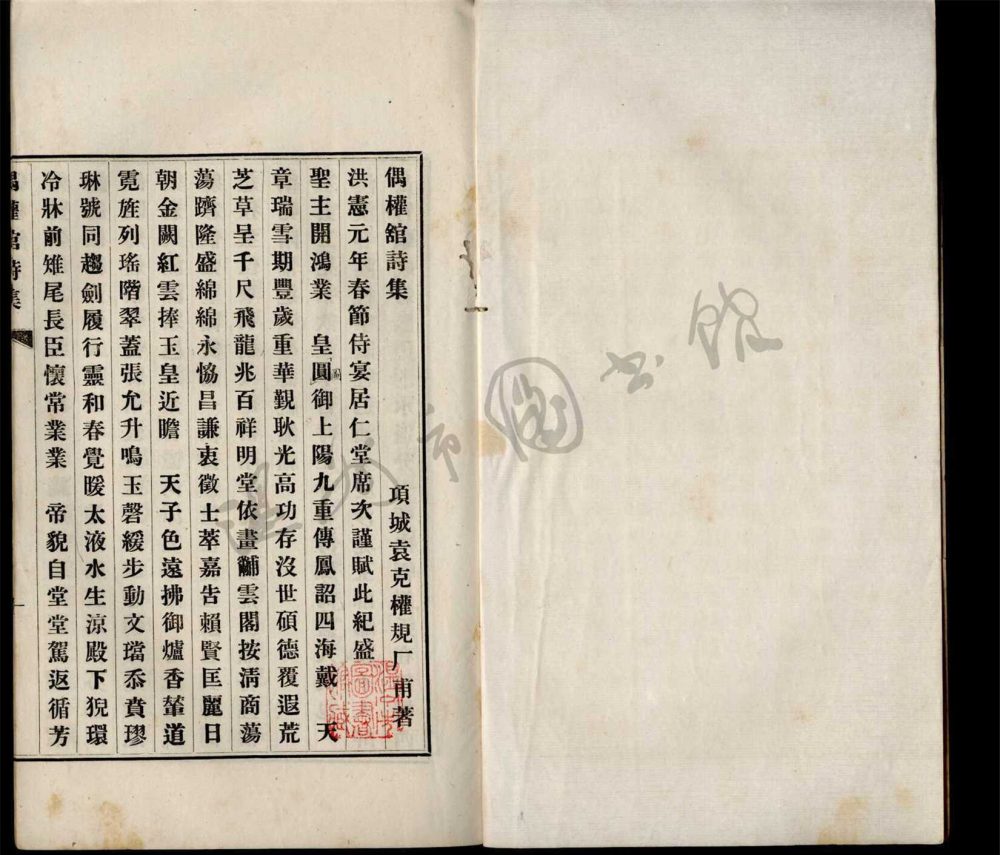 偶權舘詩集
項城袁克權規厂甫著
洪憲元年春節侍宴居仁堂席次謹賦此紀盛
聖主開鴻業　皇圓御上陽九重傳鳳詔四海戴　天
章瑞雪期豐歲重華覲耿光高功存沒世碩德覆遐荒
芝草呈千尺飛龍兆百祥明堂依畫黼雲閣按淸商蕩
蕩躋隆盛綿綿永恊昌謙衷徵士萃嘉告賴賢匡麗日
朝金闕紅雲捧玉皇近瞻　天子色遠拂御爐香輦道
霓旌列瑤階翠蓋張允升鳴玉磬緩步動文璫忝賁璆
琳號同趨劍履行靈和春覺暖太液水生涼殿下猊環
冷牀前雉尾長臣懷常業業　帝貌自堂堂駕返循芳
偶權舘詩集
一
市圖书館